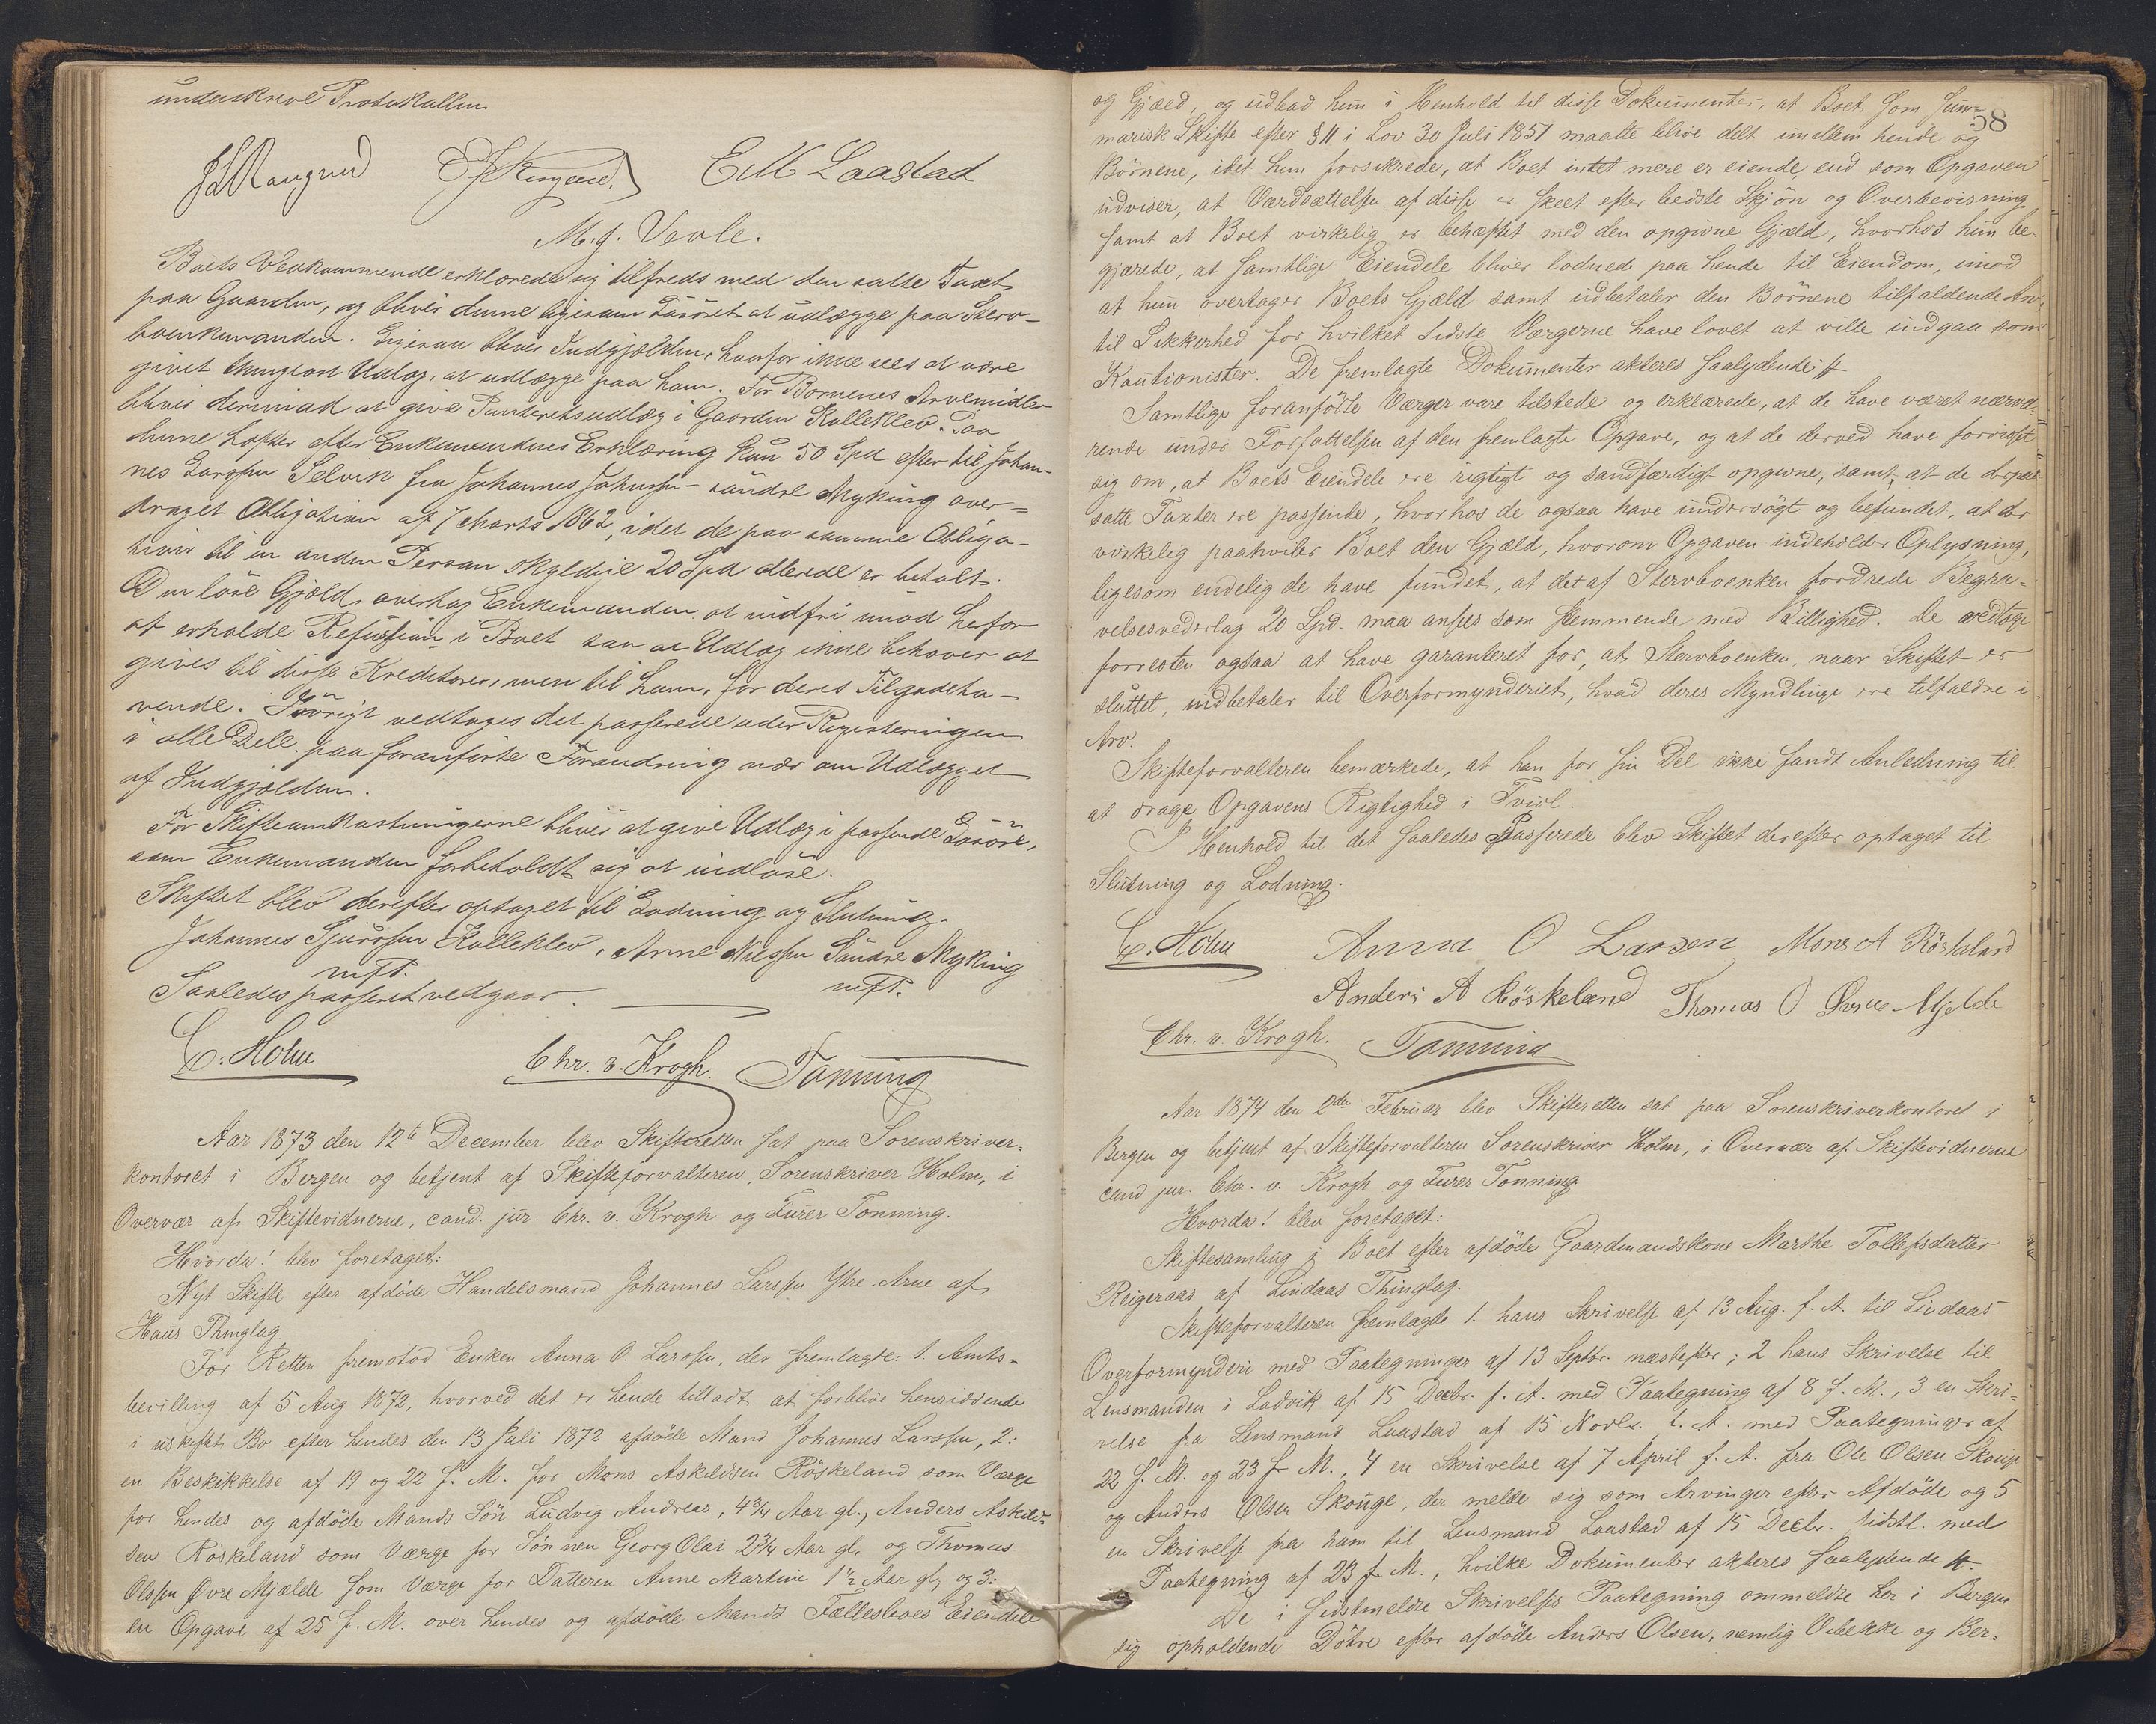 underskreve Protokollen
E M Laastad
M. J. Vevle.
Boets Vedkommende erklærede sig tilfreds med den satte Taxt
paa Gaarden, og bliver denne ligesom Løsøret at udlægge paa Sterv-
boenkemanden. Ligesaa bliver Indgjælden, hvorfor ikke sees at være
givet Udlæg, at udlægge paa ham. For Børnenes Arvemidler
bliver derimod at give Panteretsudlæg i Gaarden Kalleklev. Paa
denne hefter efter Enkemandens Erklæring kun 50 Spd efter til Johan-
nes Larssen Selvik fra Johannes Johnssen søndre Myking over-
draget Obligation af 7 Marts 1862, idet de paa samme Obliga-
tion til en anden Person skyldige 20 Spd allerede er betalt.
Den løse Gjæld overtog Enkemanden at indfri imod herfor
at erholde Refusion i Boet saa at Udlæg ikke behøver at
gives til disse Kreditorer, men til ham, for deres Tilgodeha-
vende. Iøvrigt vedtoges det passerede under Registeringen
i alle Dele paa foranførte Forandring nær om Udlægget
af Indgjælden.
For Skifteomkostningerne bliver at give Udlæg i passende Løsøre,
som Enkemanden forbeholdt sig at indløse.
Skiftet blev derefter optaget til Lodning og Slutning.
Johannes Sjurssen Kalleklev, Arne Nilssen Søndre Myking
m.f.P. m.f.P.
Saaledes passeret vedgaar.
C. Holm Chr. v. Krogh. Tonning
Aar 1873 den 12te December blev Skifteretten sat paa Sorenskriver-
kontoret i Bergen og betjent af Skifteforvalteren, Sorenskriver Holm, i
Overvær af Skiftevidnerne, cand. jur. Chr. v. Krogh og Furer Tonning.
Hvorda! blev foretaget:
Nyt Skifte efter afdøde Handelsmand Johannes Larssen Ytre-Arne af
Haus Thinglag
For Retten fremstod Enken Anna O. Larssen, der fremlagde: 1. Amts-
bevilling af 5 Aug 1872, hvorved det er hende tilladt at forblive hensiddende
i uskiftet Bo efter hendes den 13 Juli 1872 afdøde Mand Johannes Larssen, 2:
en Beskikkelse af 19 og 22 f. M. for Mons Askildsen Röskeland som Værge
for hendes og afdøde Mands Sön Ludvig Andreas, 4 3/4 Aar gl., Anders Askild-
sen Röskeland som Værge for Sönnen Georg Olai 2 3/4 Aar gl. og Thomas
Olssen Øvre Mjælde som Værge for Datteren Anne Martine 1 1/2 Aar gl, og 3:
en Opgave af 25 f. M. over hendes og afdöde Mands Fællesboes Eiendele
58
og Gjæld, og udbad hun i Henhold til disse Dokumenter, at Boet som Sum-
marisk Skifte efter § 11 i Lov 30 Juli 1851 maatte blive delt imellem hende og
Börnene, idet hun forsikrede, at Boet intet mere er eiende, end som Opgaven
udviser, at Værdsættelsen af disse er skeet efter bedste Skjön og Overbevisning,
samt at Boet virkelig er behæftet med den opgivne Gjæld, hvorhos hun be-
gjærede, at samtlige Eiendele bliver lodnede paa hende til Eiendom, imod
at hun overtager Boets Gjæld samt udbetaler den Börnene tilfaldende Arv,
til Sikkerhed for hvilket sidste Værgerne have lovet at ville indgaa som
Kautionister. De fremlagte Dokumenter akteres saalydende:
Samtlige foranførte Værger vare tilstede og erklærede, at de have været nærvæ-
rende under Forfattelsen af den fremlagte Opgave, og at de derved have forvisset
sig om, at Boets Eiendele ere rigtigt og sandfærdigt opgivne, samt at de derpaa
satte Taxter ere passende, hvorhos de ogsaa have undersögt og befundet, at der
virkelig paahviler Boet den Gjæld, hvorom Opgaven indeholder Oplysning,
ligesom endelig de have fundet, at det af Stervboenken fordrede Begra-
velsesvederlag 20 Spd. maa anses som stemmende med Billighed. De vedtoge
forresten ogsaa at have garanteret for, at Stervboenken, naar Skiftet er
sluttet, indbetaler til Overformynderiet, hvad deres Myndlinge ere tilfaldne i
Arv.
Skifteforvalteren bemærkede, at han for sin Del ikke fandt Anledning til
at drage Opgavens Rigtighed i Tvivl.
I Henhold til det saaledes Passerede blev Skiftet derefter optaget til
Slutning og Lodning.
C. Holm Anna O Larsen Mons A Röskeland
Anders A Röskeland Thomas O Øvre Mjelde
Chr. v. Krogh. Tonning
Aar 1874 den 2den Februar blev Skifteretten sat paa Sorenskriverkontoret i
Bergen og betjent af Skifteforvalteren Sorenskriver Holm, i Overvær af Skiftevidnerne
cand jur. Chr. v. Krogh og Furer Tonning
Hvorda! blev foretaget:
Skiftesamling i Boet efter afdöde Gaardmandskone Marthe Tollefsdatter
Reigeraas af Lindaas Thinglag.
Skifteforvalteren fremlagde 1. hans Skrivelse af 13 Aug. f. A. til Lindaas
Overformynderi med Paategninger af 13 Septbr. næstefter; 2 hans Skrivelse til
Lensmanden i Ladvik af 15 Decbr. f. A. med Paategning af 8 f. M., 3 en Skri-
velse fra Lensmand Laastad af 15 Novbr. f. A. med Paategninger af
22 f. M. og 23 f. M., 4 en Skrivelse af 7 April f. A. fra Ole Olsen Skouge
og Anders Olsen Skouge, der melde sig som Arvinger efter Afdöde og 5
en Skrivelse fra ham til Lensmand Laastad af 15 Decbr. sidstl. med
Paategning af 23 f. M., hvilke Dokumenter akteres saalydende
De i sidstmeldte Skrivelses Paategning ommeldte her i Bergen
sig opholdende Döttre efter afdöde Anders Olsen, nemlig Vebekke og Ber-